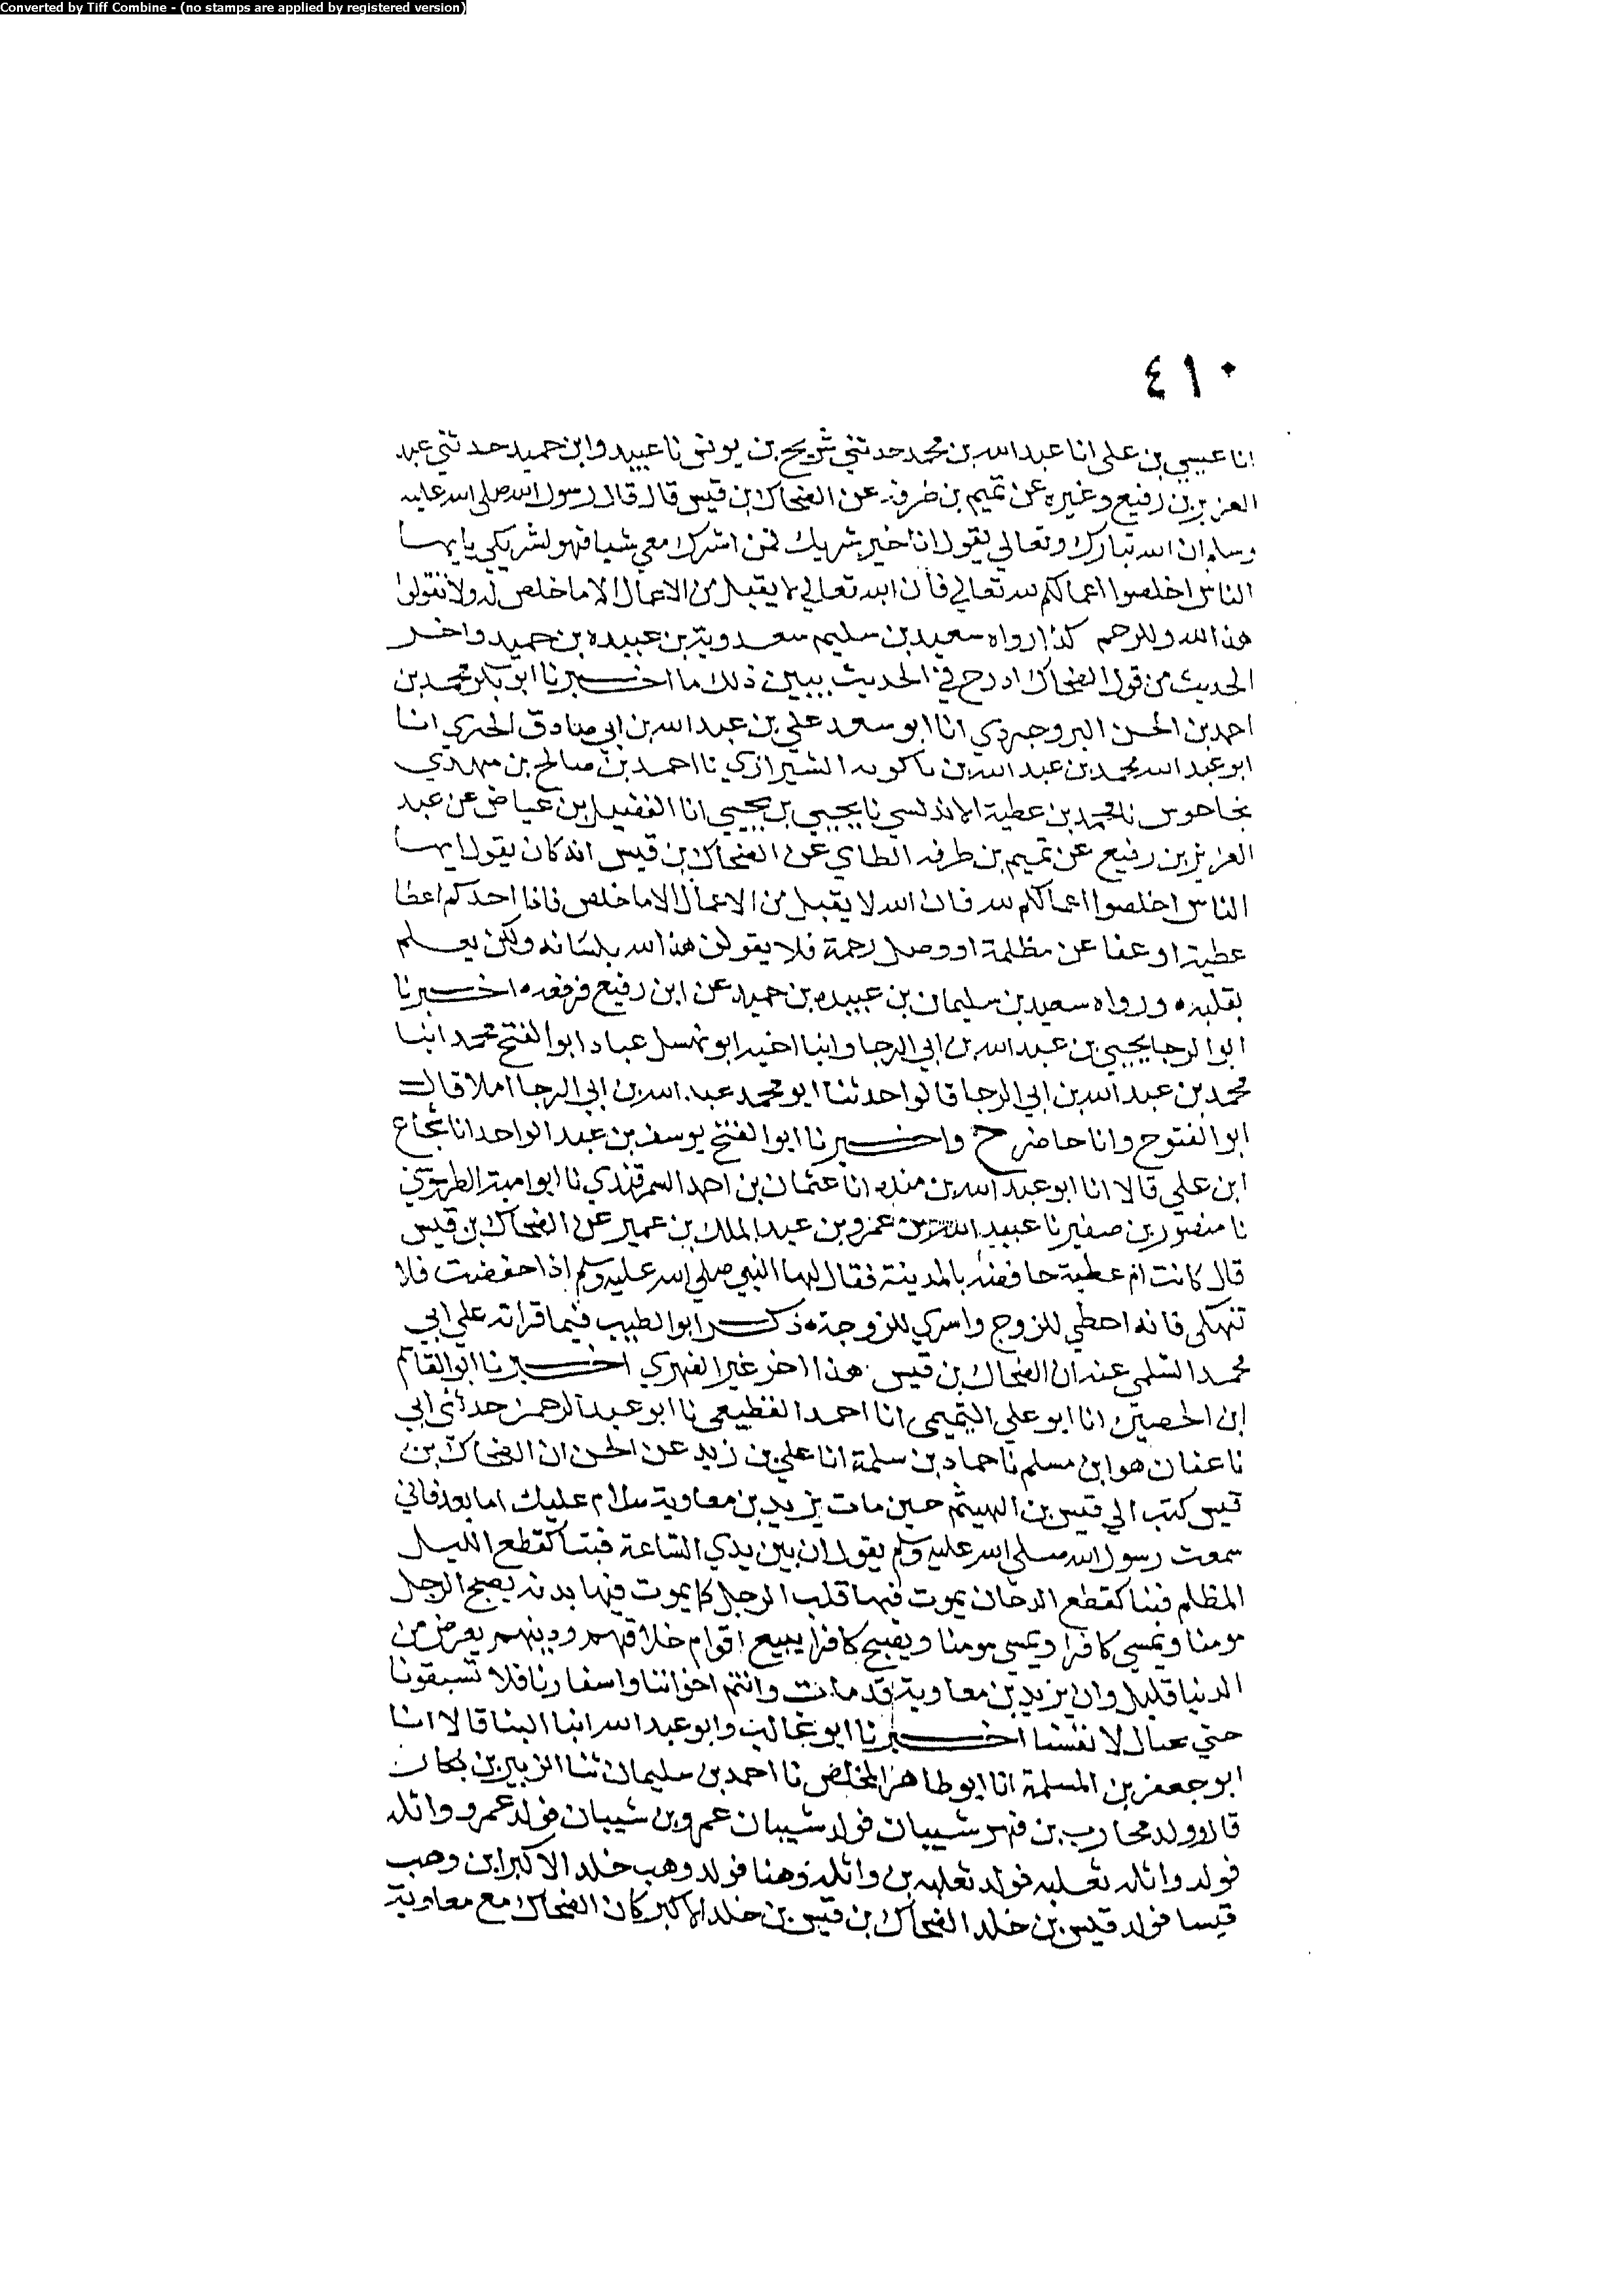 Converted by Tiff Combine - (no stamps are applied by registered version)
٤١٠
انا عيسي بن علي انا عبد الله بن محمد حدثني شريح بن يونس نا عبيد وابن حميد حدثني عبد
العزيز بن رفيع وغيره عن تميم بن طرفه عن الضحاك بن قيس قال قال رسول الله صلى الله عليه
وسلم ان الله تبارك وتعالي يقول انا خير شريك فمن اشرك معي شيا فهو لشريكي يايها
الناس اخلصوا اعمالكم لله تعالي فان الله تعالي لا يقبل من الاعمال الا ما خلص له ولا تقولوا
هذا لله وللرحم كذا رواه سعيد بن سليم سعدويه بن عبيده بن حميد واخر
الحديث من قول الضحاك ادرج في الحديث يبين ذلك ما اخبرنا ابو بكر محمد بن
احمد بن الحسن البروجردي انا ابو سعد علي بن عبد الله بن ابي صادق الحيري انا
ابو عبد الله محمد بن عبد الله بن باكويه الشيرازي نا احمد بن صالح بن مهدي
نا محمد بن عطية الاندلسي نا يحيي بن يحيي انا الفضيل بن عياض عن عبد
العزيز بن رفيع عن تميم بن طرفه الطاي عن الضحاك بن قيس انه كان يقول ايها
الناس اخلصوا اعمالكم لله فان الله لا يقبل من الاعمال الا ما خلص فاذا احدكم اعطا
عطية او عفا عن مظلمة او وصل رحمة فلا يقولن هذا لله بلسانه ولكن يعلم
بقلبه ورواه سعيد بن سليمان بن عبيده بن حميد عن ابن رفيع فرفعه اخبرنا
ابو الرجا يحيي بن عبد الله بن ابي الرجا وابنا اخيه ابو نهشل عباد ابو الفتح محمد ابنا
محمد بن عبد الله بن ابي الرجا قالوا حدثنا ابو محمد عبد الله بن ابي الرجا املا قال
ابو الفتوح وانا حاضر ح واخبرنا ابو الفتح يوسف بن عبد الواحد انا شجاع
ابن علي قالا انا ابو عبد الله بن منده انا عثمان بن احمد السمرقندي نا ابو امية الطرسوسي
نا منصور بن صفير نا عبيد الله بن عمرو بن عبد الملك بن عمير عن الضحاك بن قيس
قال كانت ام عطية خافضه بالمدينة فقال لها النبي صلي الله عليه وسلم اذا خفضت فلا
تنهكي فانه احظي للزوج واسري للزوجة ذكر ابو الطيب فيما قراته علي ابي
محمد السلمي عنه ان الضحاك بن قيس هذا اخر غير الفهري اخبرنا ابو القاسم
ابن الحصين انا ابو علي التميمي انا احمد القطيعي نا ابو عبد الرحمن حدثني ابي
نا عفان هو ابن مسلم نا حماد بن سلمة انا علي بن زيد عن الحسن ان الضحاك بن
قيس كتب الي قيس بن الهيثم حين مات يزيد بن معاوية سلام عليك اما بعد فاني
سمعت رسول الله صلي الله عليه وسلم يقول ان بين يدي الساعة فتنا كقطع الليل
المظلم فتنا كقطع الدخان يموت فيها قلب الرجل كما يموت فيها بدنه يصبح الرجل
مومنا ويمسي كافرا ويمسي مومنا ويصبح كافرا يبيع اقوام خلاقهم ودينهم بعرض من
الدنيا قليل وان يزيد بن معاوية قد مات وانتم اخواننا واسفارنا فلا تسبقونا
حتي نحتال لانفسنا اخبرنا ابو غالب وابو عبد الله ابنا البنا قالا انا
ابو جعفر بن المسلمة انا ابو طاهر المخلص نا احمد بن سليمان ثنا الزبير بن بكار
قال وولد محارب بن فهر شيبان فولد شيبان عمرو بن شيبان فولد عمرو وائله
فولد وائله ثعلبه فولد ثعلبه بن وائله وهبا فولد وهب خلد الاكبر ابن وهب
قيسا فولد قيس بن خلد الضحاك بن قيس بن خلد الاكبر كان الضحاك مع معاوية